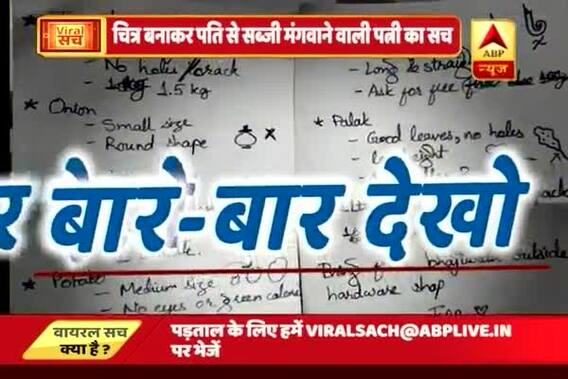 Viral
सच
चित्र बनाकर पति से सब्जी मंगवाने वाली पत्नी का सच
abp
ABP
न्यूज़
- No holes / crack
1.5 kg
* Onion
- Small size
- Round shape
- Long & straight
- Ask for free
* Palak
- Good leaves, no holes
र बेारे-बार देखो
* Potato
- Medium size
- No eyes or green colored
outside
hardware shop
वायरल सच
क्या है ?
पड़ताल के लिए हमें VIRALSACH@ABPLIVE.IN
पर भेजें